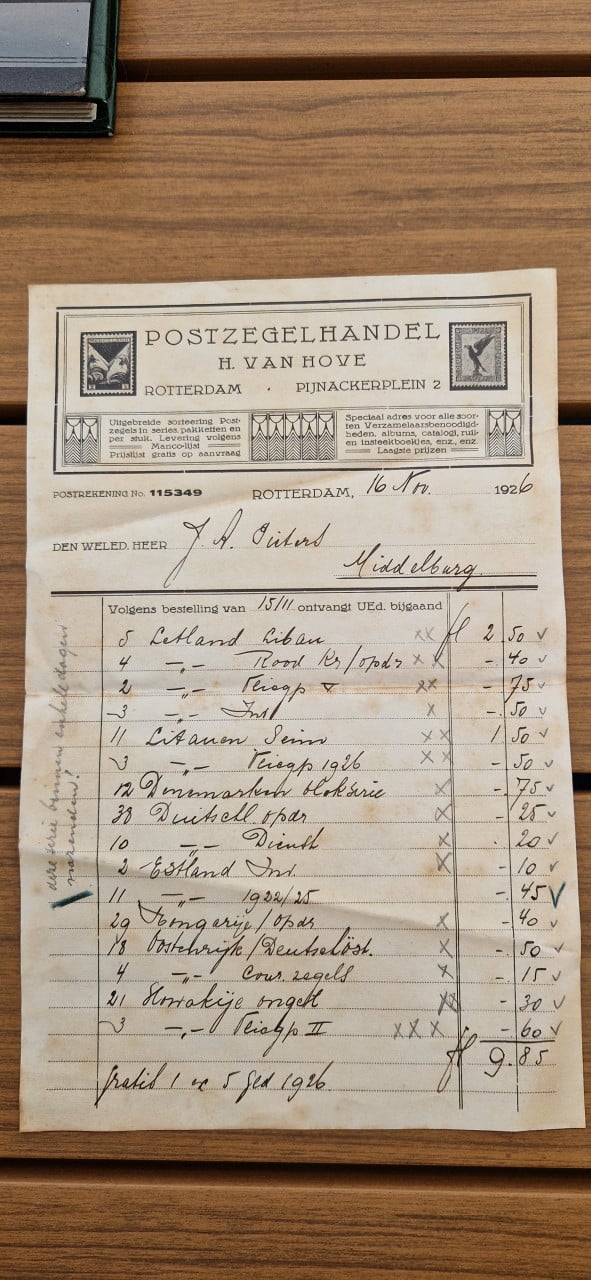 POSTZEGELHANDEL
H. VAN HOVE
ROTTERDAM · PIJNACKERPLEIN 2
Uitgebreide sorteering Post-
zegels in series, pakketten en
per stuk. Levering volgens
Manco-lijst
Prijslijst gratis op aanvraag
Speciaal adres voor alle soor-
ten Verzamelaarsbenoodigd-
heden, albums, catalogi, ruil-
en insteekboekjes, enz., enz.
Laagste prijzen
POSTREKENING No. 115349
ROTTERDAM, 16 Nov. 1926
DEN WELED. HEER J. A. Pieters
Middelburg.
Volgens bestelling van 15/11 ontvangt UEd. bijgaand
5 Letland Libau xx fl 2.50
4 -„- Rood Kr/opdr x x -.40
2 -„- Vliegp ▽ xx -.75
3 -„- Inv x -.50
11 Litauen Seim x x 1.50
3 -„- Vliegp 1926 x x -.50
12 Denemarken blokserie x -.75
38 Duitschl. opdr x -.25
10 -„- Dienst x .20
2 Estland Inv. x -.10
11 -„- 1922/25 -.45
29 Hongarije/opdr x -.40
18 Oostenrijk/Deutschöst. x -.50
4 -„- Cour. zegels x -.15
21 Slowakije ongest xx -.30
3 -„- Vliegp II x x x -.60
fl 9.85
gratis 1 5 1926
serie binnen enkele dagen